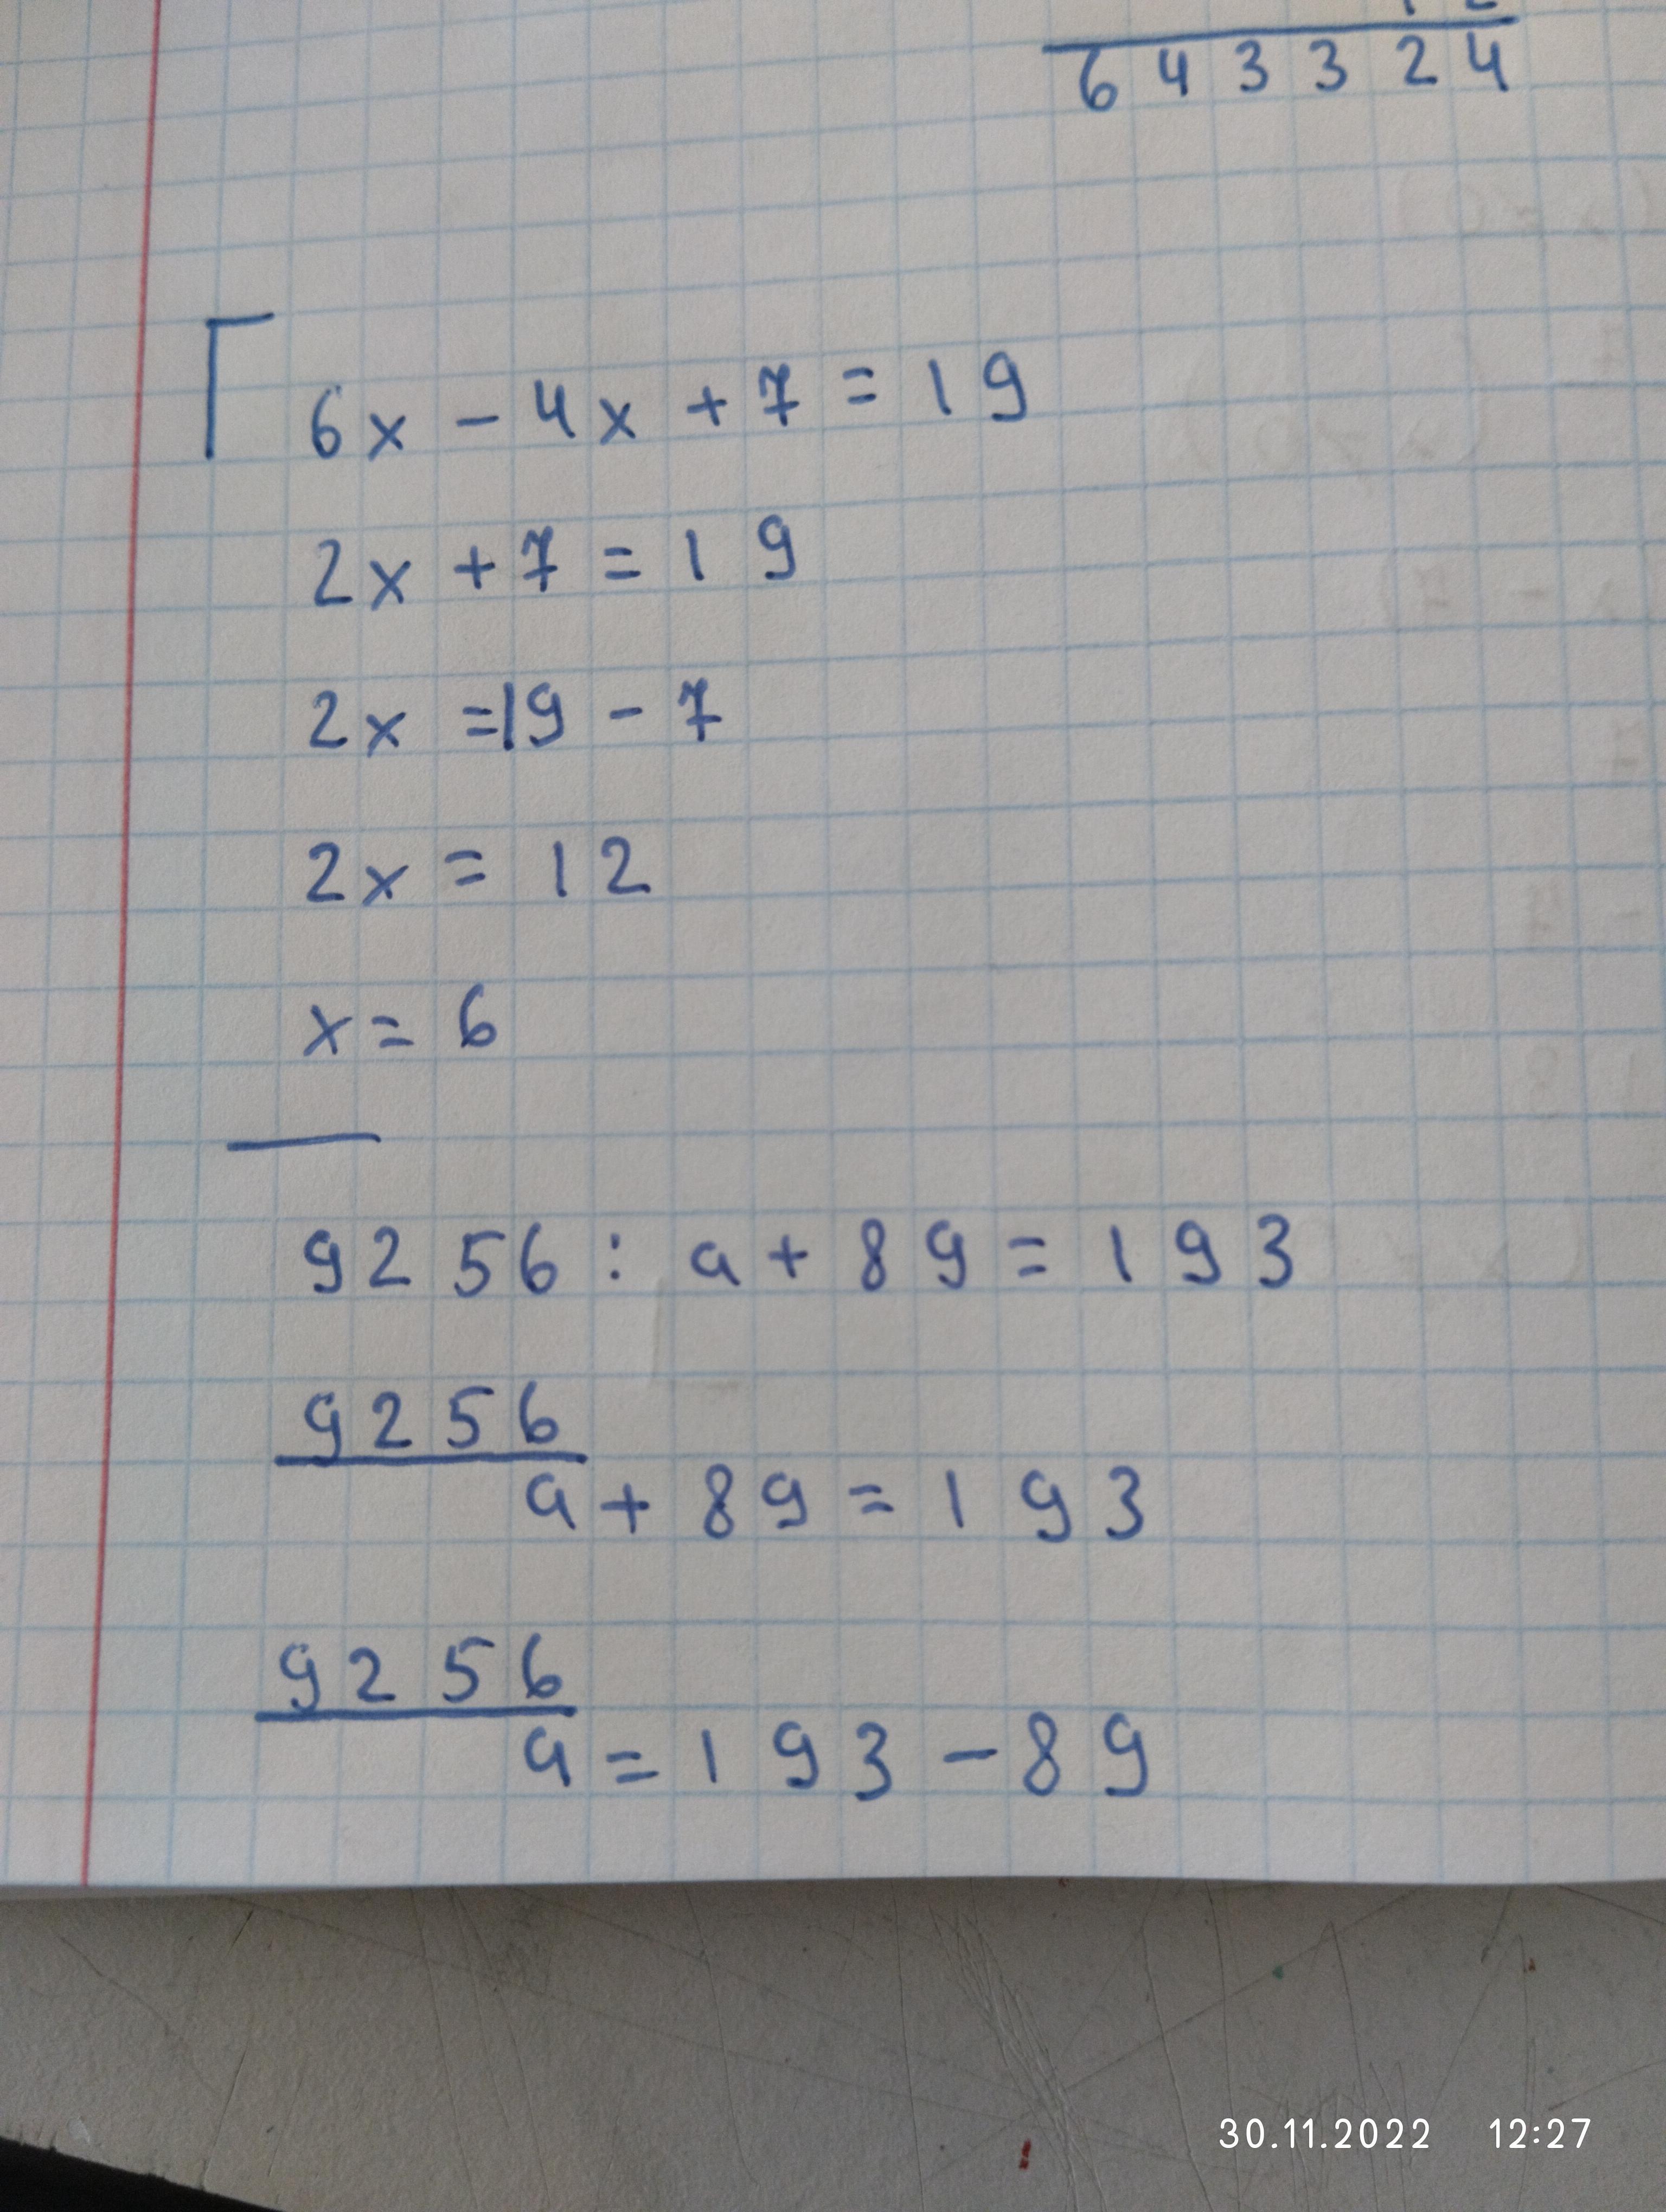 643324
6x - 4x + 7 = 19
2x + 7 = 19
2x = 19 - 7
2x = 12
x = 6
9256 : a + 89 = 193
9256
a + 89 = 193
9256
a = 193 - 89
30.11.2022 12:27